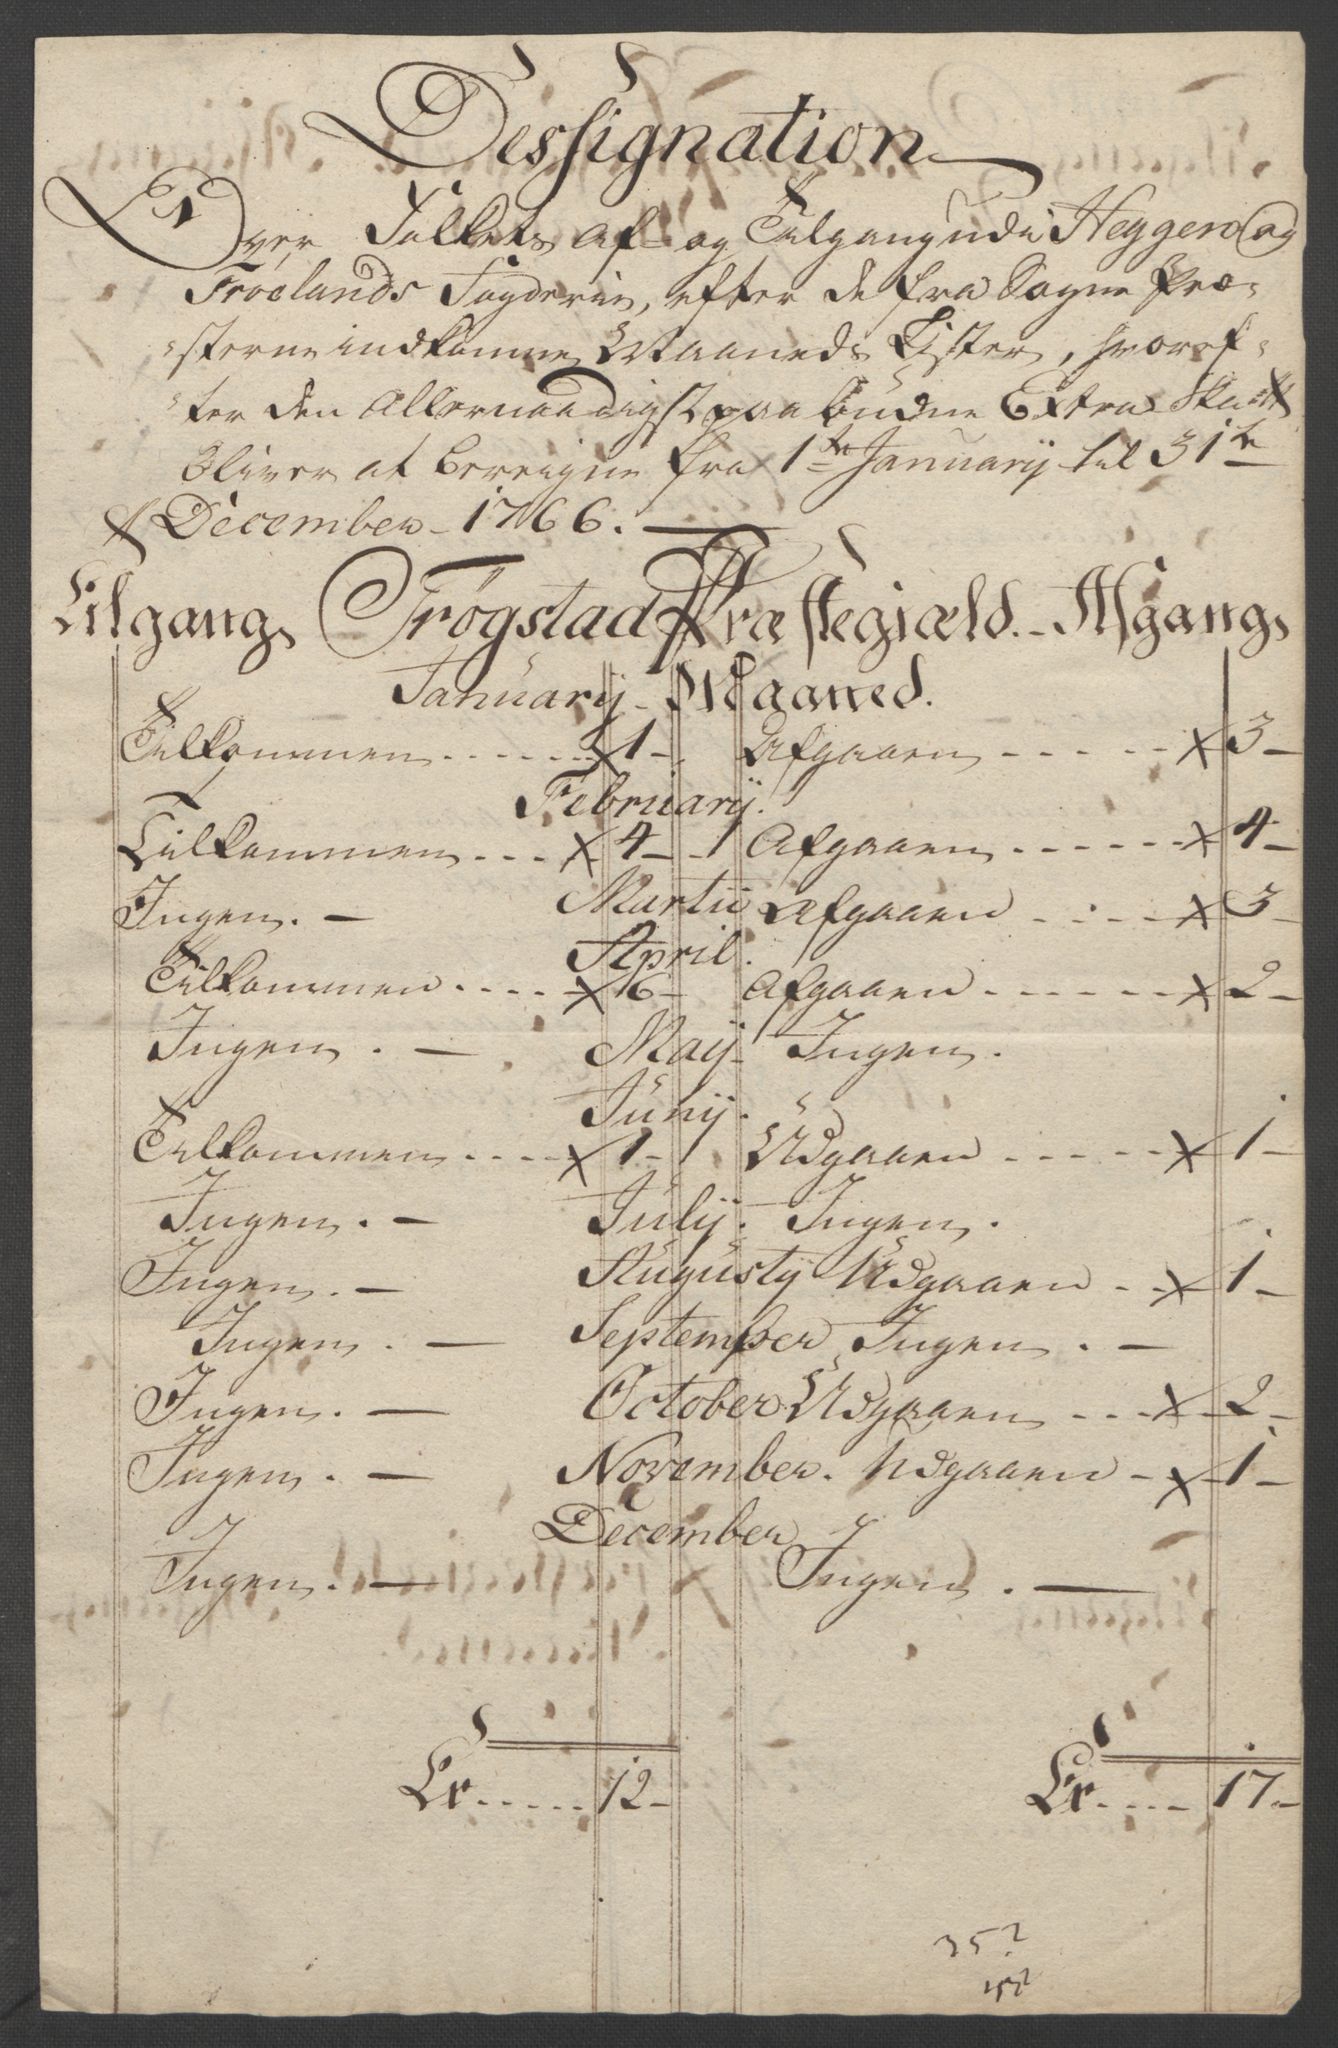 Dessignation
Over Folkets Af- og Tilgang udi Heggen og
Frøelands Fogderie, efter de fra Sogne Præ-
sterne indkomne Maaneds Lister, hvoref-
ter den Allernaadigst paabudne Extra Skatt
bliver at beregne fra 1te January til 31te
December 1766.
Tilgang Trøgstad Præstegiæld. Afgang
January Maaned.
Tilkommen ...... 1 - Afgaaen ..... 3 -
February.
Tilkommen ... 4 - Afgaaen ...... 4 -
Ingen. - Martii Afgaaen .... 3 -
April.
Tilkommen .... 6 - Afgaaen ...... 2 -
Ingen. - Maij Ingen.
Junij.
Tilkommen .... 1 - Udgaaen ..... 1 -
Ingen. - Julij. Ingen.
Ingen. - Augustij Udgaaen .. 1 -
Ingen. - September Ingen. -
Ingen. - October Udgaaen ... 2 -
Ingen. - November. Udgaaen - 1 -
December
Ingen. - Ingen. -
Er ..... 12 - Er .... 17 -
352